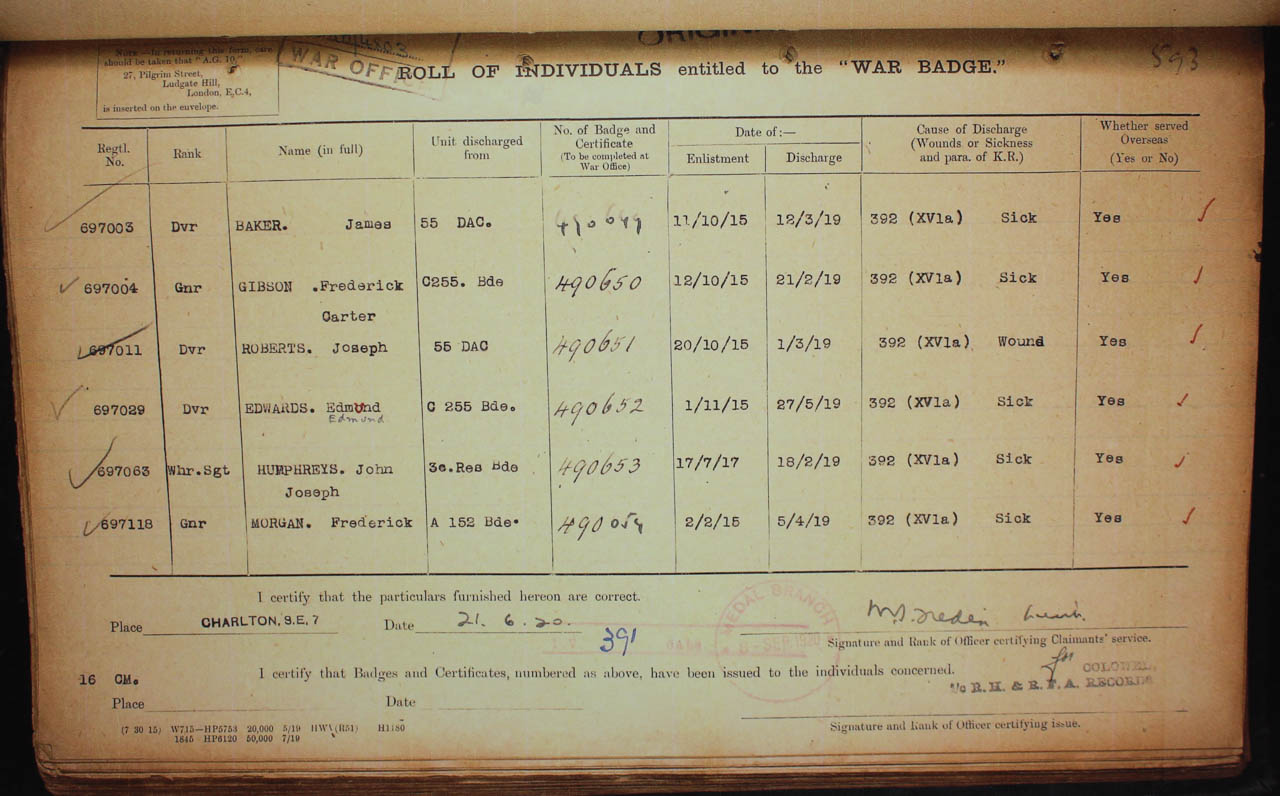 ORIGIN
593
Note—In returning this form, care
should be taken that "A.G. 10,"
27, Pilgrim Street,
Ludgate Hill,
London, E.C.4,
is inserted on the envelope.
WAR OFFICE
ROLL OF INDIVIDUALS entitled to the "WAR BADGE."
Regtl. No. Rank Name (in full) Unit discharged from No. of Badge and Certificate (To be completed at War Office) Date of:— Enlistment Discharge Cause of Discharge (Wounds or Sickness and para. of K.R.) Whether served Overseas (Yes or No)
697003 Dvr BAKER. James 55 DAC. 490649 11/10/15 12/3/19 392 (XV1a) Sick Yes
697004 Gnr GIBSON .Frederick C255. Bde 490650 12/10/15 21/2/19 392 (XV1a) Sick Yes
Carter
697011 Dvr ROBERTS. Joseph 55 DAC 490651 20/10/15 1/3/19 392 (XV1a) Wound Yes
697029 Dvr EDWARDS. Edmund C 255 Bde. 490652 1/11/15 27/5/19 392 (XV1a) Sick Yes
Edmund
697063 Whr.Sgt HUMPHREYS. John 3c.Res Bde 490653 17/7/17 18/2/19 392 (XV1a) Sick Yes
Joseph
697118 Gnr MORGAN. Frederick A 152 Bde. 490654 2/2/15 5/4/19 392 (XV1a) Sick Yes
I certify that the particulars furnished hereon are correct.
Place CHARLTON, S.E, 7 Date 21. 6. 20.
391
MEDAL BRANCH
SEP 1920
Signature and Rank of Officer certifying Claimants' service.
for COLONEL,
I/c R.H. & R.F.A. RECORDS
I certify that Badges and Certificates, numbered as above, have been issued to the individuals concerned.
16 CM.
Place Date
Signature and Rank of Officer certifying issue.
(7 30 15) W715—HP5753 20,000 5/19 HWV(R51) H1180
1645 HP6120 50,000 7/19